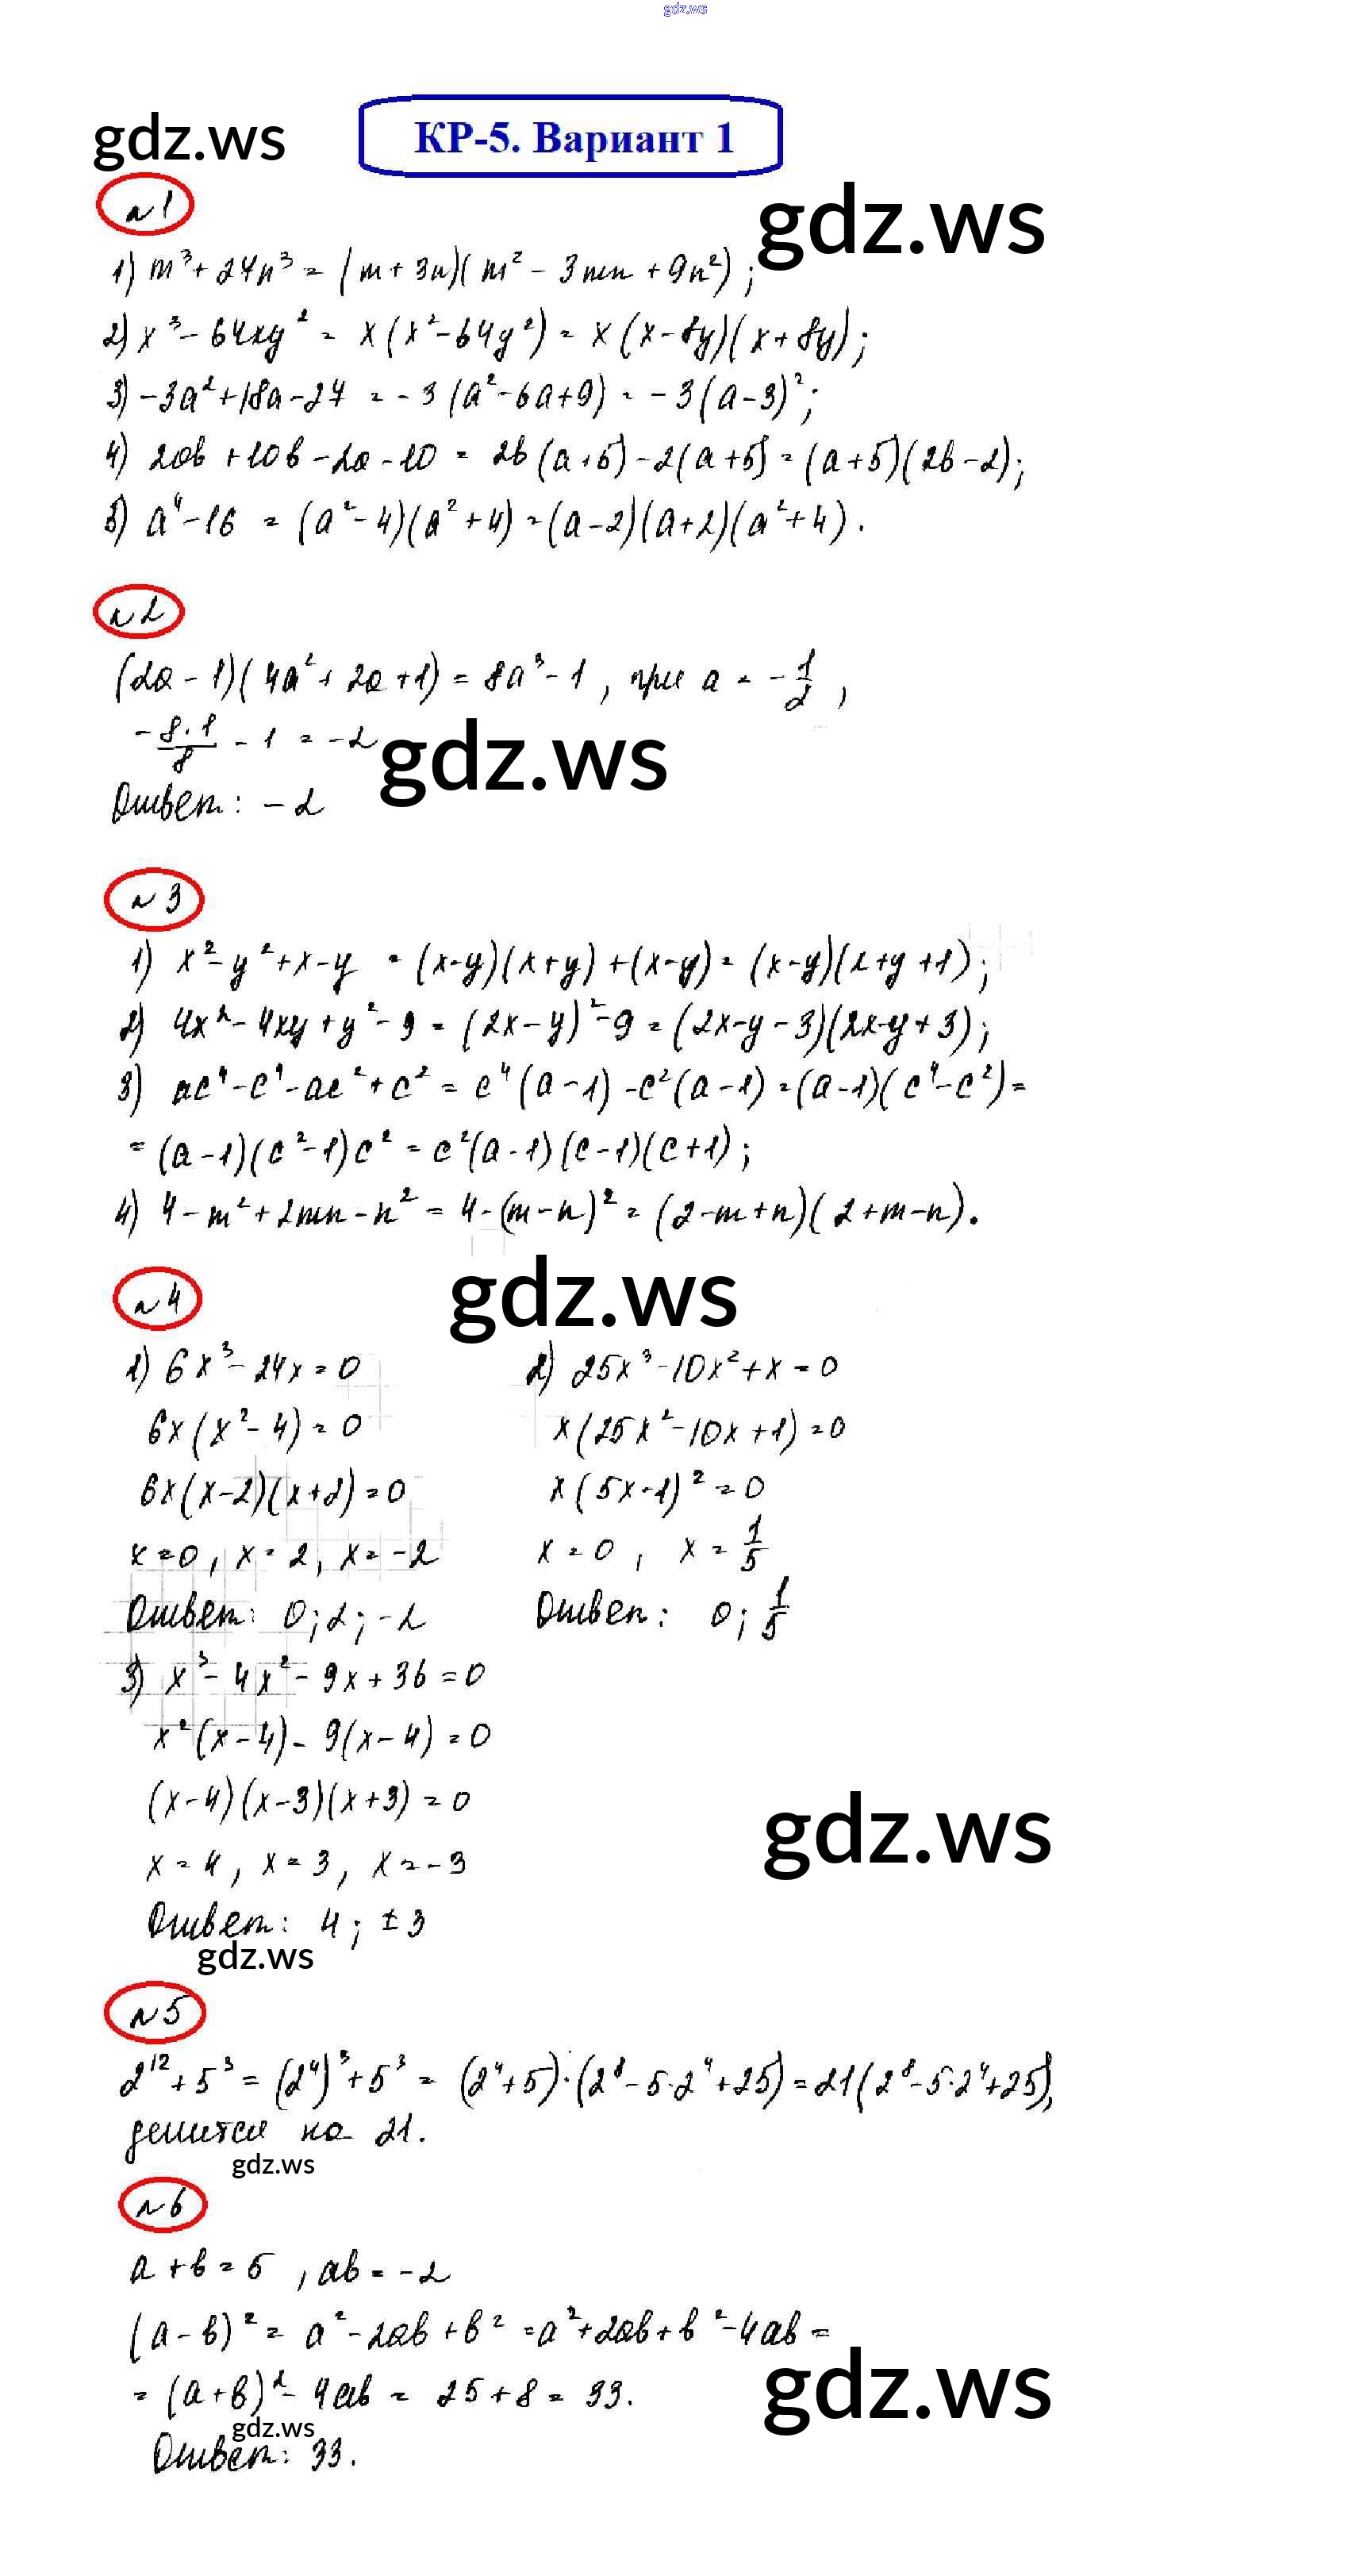 gdz.ws
gdz.ws
КР-5. Вариант 1
№1
gdz.ws
1) m³ + 27n³ = (m + 3n)(m² - 3mn + 9n²);
2) x³ - 64xy² = x(x² - 64y²) = x(x - 8y)(x + 8y);
3) -3a² + 18a - 27 = -3(a² - 6a + 9) = -3(a - 3)²;
4) 2ab + 10b - 2a - 10 = 2b(a + 5) - 2(a + 5) = (a + 5)(2b - 2);
5) a⁴ - 16 = (a² - 4)(a² + 4) = (a - 2)(a + 2)(a² + 4).
№2
(2a - 1)(4a² + 2a + 1) = 8a³ - 1, при a = -1/2,
-8·1/8 - 1 = -2
gdz.ws
Ответ: -2
№3
1) x² - y² + x - y = (x-y)(x+y) + (x-y) = (x-y)(x+y+1);
2) 4x² - 4xy + y² - 9 = (2x - y)² - 9 = (2x-y-3)(2x-y+3);
3) ac⁴ - c⁴ - ac² + c² = c⁴(a-1) - c²(a-1) = (a-1)(c⁴ - c²) =
= (a-1)(c² - 1)c² = c²(a-1)(c-1)(c+1);
4) 4 - m² + 2mn - n² = 4 - (m-n)² = (2-m+n)(2+m-n).
№4
gdz.ws
1) 6x³ - 24x = 0
6x(x² - 4) = 0
6x(x-2)(x+2) = 0
x=0, x=2, x=-2
Ответ: 0; 2; -2
2) 25x³ - 10x² + x = 0
x(25x² - 10x + 1) = 0
x(5x-1)² = 0
x = 0, x = 1/5
Ответ: 0; 1/5
3) x³ - 4x² - 9x + 36 = 0
x²(x-4) - 9(x-4) = 0
(x-4)(x-3)(x+3) = 0
gdz.ws
x = 4, x = 3, x = -3
Ответ: 4; ±3
gdz.ws
№5
2¹² + 5³ = (2⁴)³ + 5³ = (2⁴+5)·(2⁸ - 5·2⁴ + 25) = 21(2⁸ - 5·2⁴ + 25),
делится на 21.
gdz.ws
№6
a + b = 5, ab = -2
(a - b)² = a² - 2ab + b² = a² + 2ab + b² - 4ab =
= (a+b)² - 4ab = 25 + 8 = 33.
gdz.ws
gdz.ws
Ответ: 33.